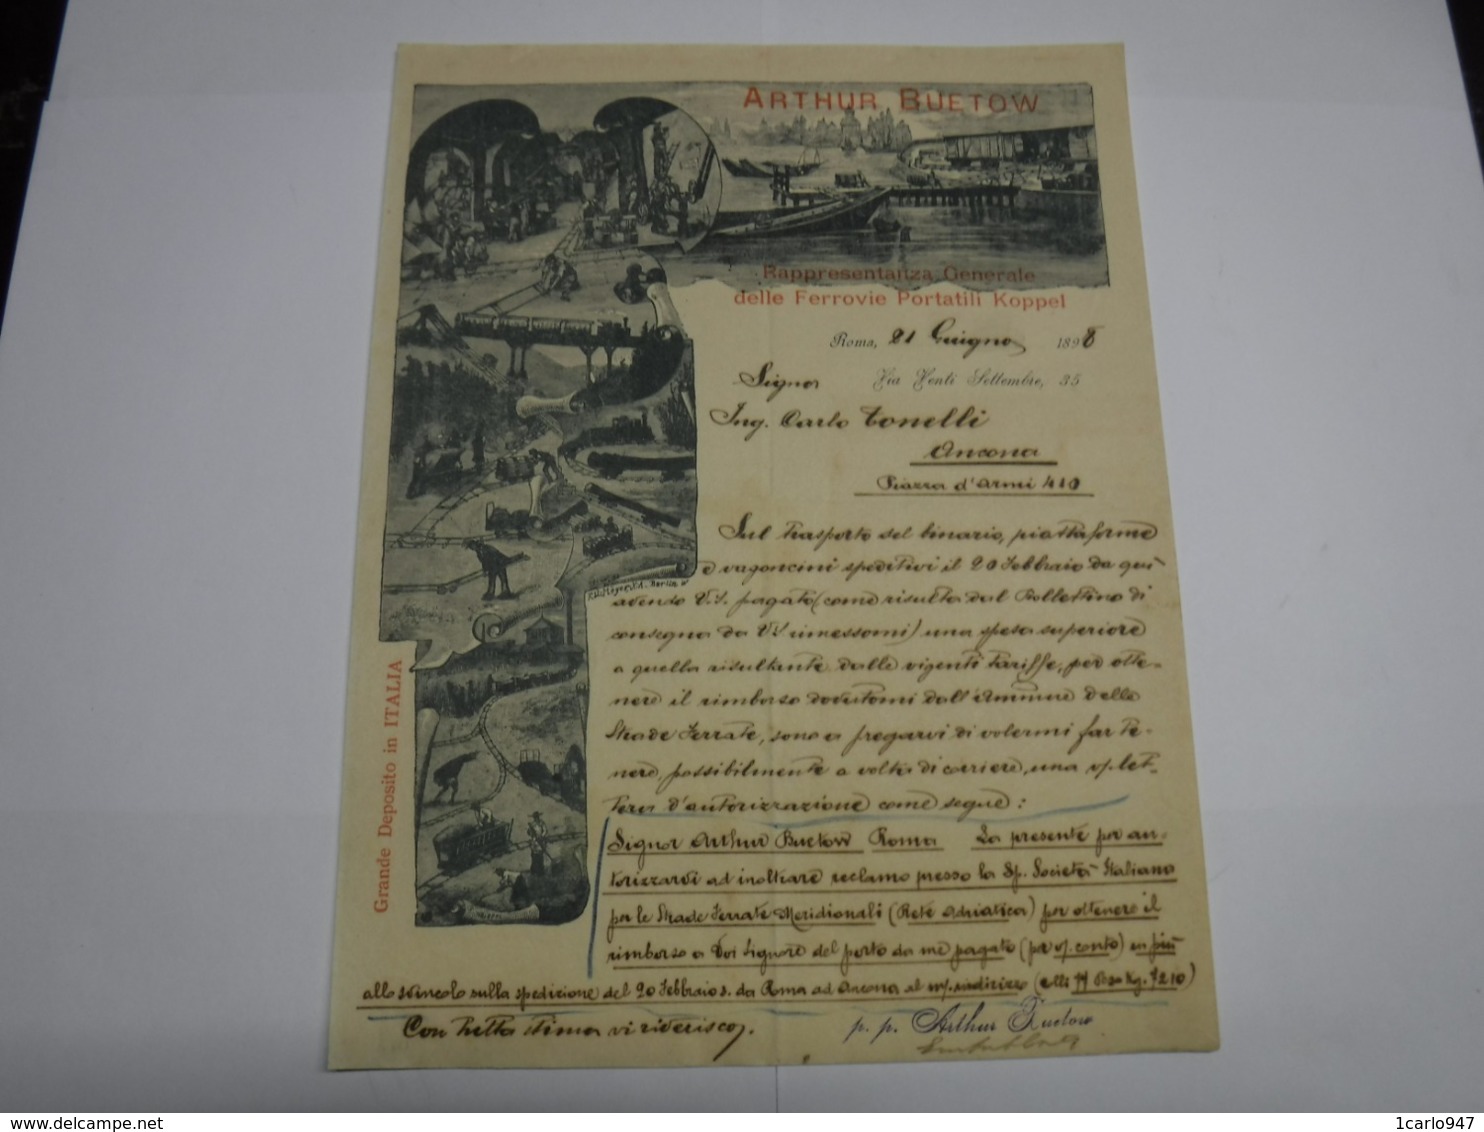 ARTHUR BUETOW
Rappresentanza Generale
delle Ferrovie Portatili Koppel
Roma, 21 Giugno 1898
Signor Via Venti Settembre, 35
Ing. Carlo Tonelli
Ancona
Piazza d'Armi 410
Sul trasporto del binario, piattaforme
e vagoncini speditivi il 20 Febbraio da qui
avendo V.S. pagato (come risulta dal Bollettino di
consegna da VS rimessomi) una spesa superiore
a quella risultante dalle vigenti tariffe, per otte-
nere il rimborso dovutomi dall'Ammne delle
Strade Ferrate, sono a pregarvi di volermi far te-
nere, possibilmente a volta di corriere, una let-
tera d'autorizzazione come segue:
Signor Arthur Buetow Roma La presente per au-
torizzarvi ad inoltrare reclamo presso la Sp. Società Italiana
per le Strade Ferrate Meridionali (Rete Adriatica) per ottenere il
rimborso a Voi Signore del porto da me pagato (per v/. conto) in più
allo svincolo sulla spedizione del 20 Febbraio s. da Roma ad Ancona al m/. indirizzo ( Peso Kg. 7210)
Con tutta stima vi riverisco.
p. p. Arthur Buetow
Grande Deposito in ITALIA
delcampe.net
1carlo947